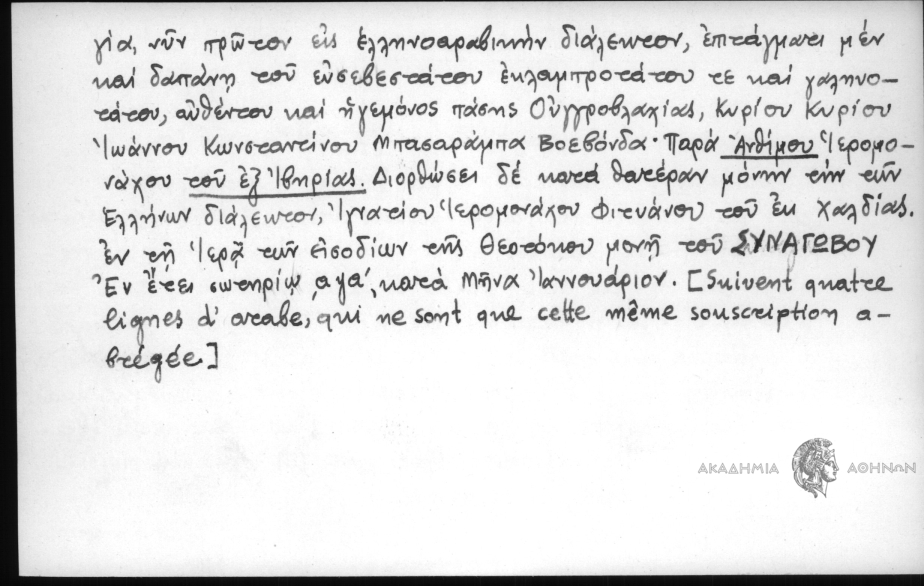 γία, νῦν πρῶτον εἰς ἑλληνοαραβικὴν διάλεκτον, ἐπιτάγματι μέν
καί δαπάνῃ τοῦ εὐσεβεστάτου ἐκλαμπροτάτου τε καί γαληνο-
τάτου, αὐθέντου καί ἡγεμόνος πάσης Οὐγγροβλαχίας, Κυρίου Κυρίου
Ἰωάννου Κωνσταντίνου Μπασαράμπα Βοεβόνδα· Παρά Ἀνθίμου Ἱερομο-
νάχου τοῦ ἐξ Ἰβηρίας. Διορθώσει δέ κατά θατέραν μόνην τήν τῶν
Ἑλλήνων διάλεκτον, Ἰγνατίου Ἱερομονάχου Φιτυάνου τοῦ ἐκ Χαλδίας.
ἐν τῇ Ἱερᾷ τῶν εἰσοδίων τῆς Θεοτόκου μονῇ τοῦ ΣΥΝΑΓΩΒΟΥ
Ἐν ἔτει σωτηρίῳ ͵αψα΄, κατά Μῆνα Ἰαννουάριον. [Suivent quatre
lignes d'arabe, qui ne sont que cette même souscription a-
brégée]
ΑΚΑΔΗΜΙΑ ΑΘΗΝΩΝ